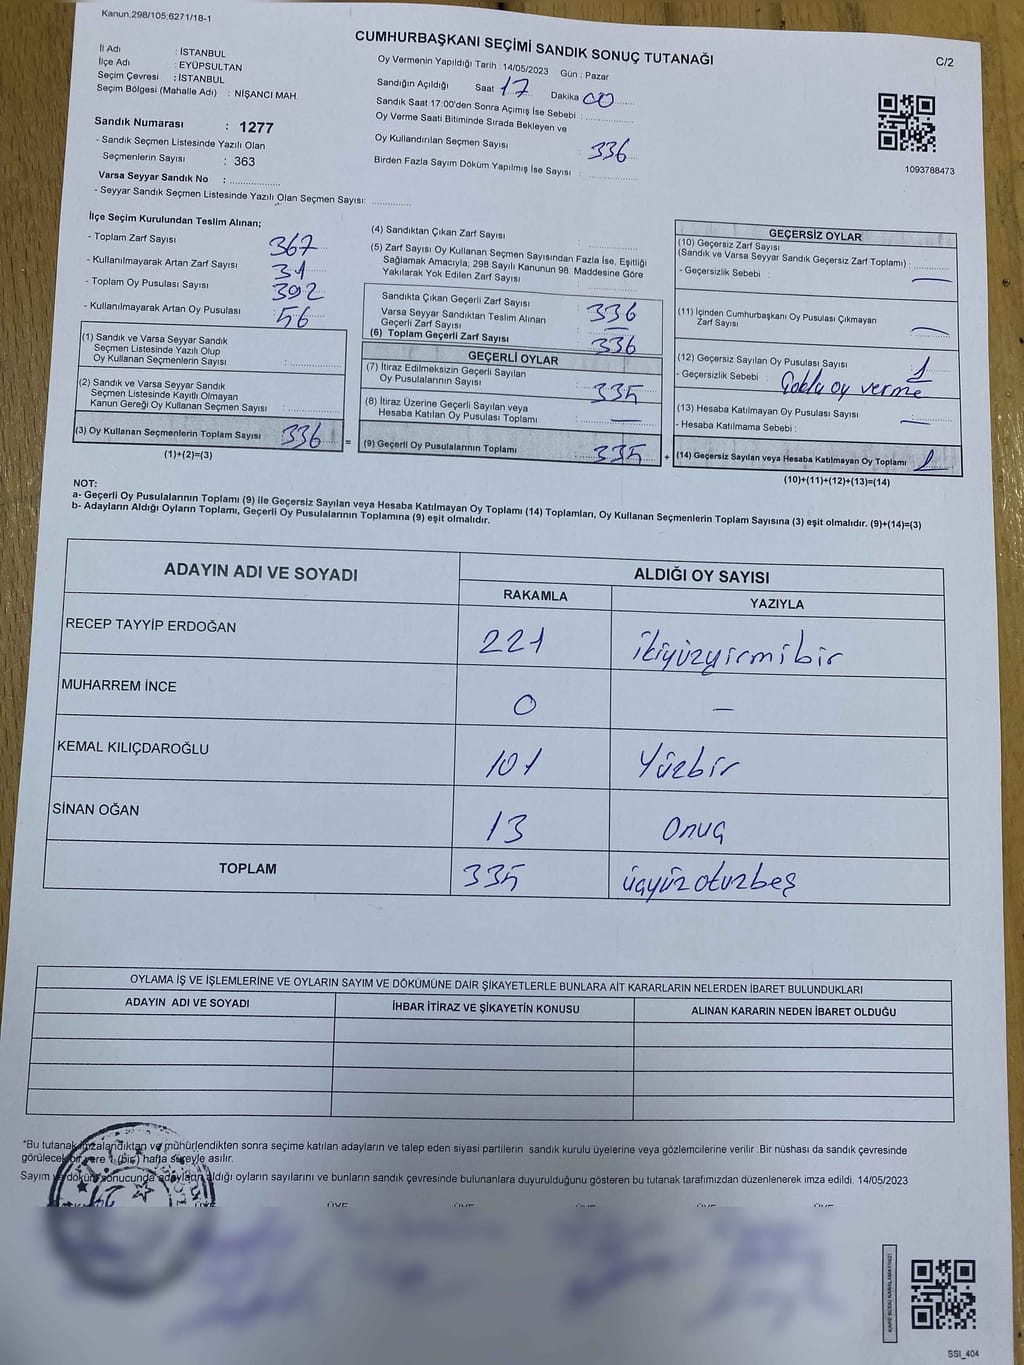 Kanun.298/105;6271/18-1
CUMHURBAŞKANI SEÇİMİ SANDIK SONUÇ TUTANAĞI
C/2
İl Adı : İSTANBUL
İlçe Adı : EYÜPSULTAN
Seçim Çevresi : İSTANBUL
Seçim Bölgesi (Mahalle Adı) : NİŞANCI MAH.
Sandık Numarası : 1277
- Sandık Seçmen Listesinde Yazılı Olan
Seçmenlerin Sayısı : 363
Varsa Seyyar Sandık No : ................
- Seyyar Sandık Seçmen Listesinde Yazılı Olan Seçmen Sayısı: ............
Oy Vermenin Yapıldığı Tarih : 14/05/2023 Gün : Pazar
Sandığın Açıldığı Saat 17 Dakika 00
Sandık Saat 17:00'den Sonra Açımış İse Sebebi : ..............
Oy Verme Saati Bitiminde Sırada Bekleyen ve
Oy Kullandırılan Seçmen Sayısı : 336
Birden Fazla Sayım Döküm Yapılmış İse Sayısı : ..............
1093788473
İlçe Seçim Kurulundan Teslim Alınan;
- Toplam Zarf Sayısı 367
- Kullanılmayarak Artan Zarf Sayısı 31
- Toplam Oy Pusulası Sayısı 392
- Kullanılmayarak Artan Oy Pusulası 56
(1) Sandık ve Varsa Seyyar Sandık
Seçmen Listesinde Yazılı Olup
Oy Kullanan Seçmenlerin Sayısı : ..............
(2) Sandık ve Varsa Seyyar Sandık
Seçmen Listesinde Kayıtlı Olmayan
Kanun Gereği Oy Kullanan Seçmen Sayısı : ..............
(3) Oy Kullanan Seçmenlerin Toplam Sayısı 336 =
(1)+(2)=(3)
(4) Sandıktan Çıkan Zarf Sayısı : ..............
(5) Zarf Sayısı Oy Kullanan Seçmen Sayısından Fazla İse, Eşitliği
Sağlamak Amacıyla, 298 Sayılı Kanunun 98. Maddesine Göre
Yakılarak Yok Edilen Zarf Sayısı : ..............
Sandıkta Çıkan Geçerli Zarf Sayısı : 336
Varsa Seyyar Sandıktan Teslim Alınan
Geçerli Zarf Sayısı : —
(6) Toplam Geçerli Zarf Sayısı : 336
GEÇERLİ OYLAR
(7) İtiraz Edilmeksizin Geçerli Sayılan
Oy Pusulalarının Sayısı : 335
(8) İtiraz Üzerine Geçerli Sayılan veya
Hesaba Katılan Oy Pusulası Toplamı : —
(9) Geçerli Oy Pusulalarının Toplamı : 335 +
GEÇERSİZ OYLAR
(10) Geçersiz Zarf Sayısı
(Sandık ve Varsa Seyyar Sandık Geçersiz Zarf Toplamı) : ............
- Geçersizlik Sebebi : —
(11) İçinden Cumhurbaşkanı Oy Pusulası Çıkmayan
Zarf Sayısı : —
(12) Geçersiz Sayılan Oy Pusulası Sayısı : 1
- Geçersizlik Sebebi : Çoklu oy verme
(13) Hesaba Katılmayan Oy Pusulası Sayısı : —
- Hesaba Katılmama Sebebi :
(14) Geçersiz Sayılan veya Hesaba Katılmayan Oy Toplamı : 1
(10)+(11)+(12)+(13)=(14)
NOT:
a- Geçerli Oy Pusulalarının Toplamı (9) ile Geçersiz Sayılan veya Hesaba Katılmayan Oy Toplamı (14) Toplamları, Oy Kullanan Seçmenlerin Toplam Sayısına (3) eşit olmalıdır. (9)+(14)=(3)
b- Adayların Aldığı Oyların Toplamı, Geçerli Oy Pusulalarının Toplamına (9) eşit olmalıdır.
ADAYIN ADI VE SOYADI ALDIĞI OY SAYISI
RAKAMLA YAZIYLA
RECEP TAYYİP ERDOĞAN 221 ikiyüzyirmibir
MUHARREM İNCE 0 —
KEMAL KILIÇDAROĞLU 101 Yüzbir
SİNAN OĞAN 13 Onüç
TOPLAM 335 üçyüzotuzbeş
OYLAMA İŞ VE İŞLEMLERİNE VE OYLARIN SAYIM VE DÖKÜMÜNE DAİR ŞİKAYETLERLE BUNLARA AİT KARARLARIN NELERDEN İBARET BULUNDUKLARI
ADAYIN ADI VE SOYADI İHBAR İTİRAZ VE ŞİKAYETİN KONUSU ALINAN KARARIN NEDEN İBARET OLDUĞU
*Bu tutanak imzalandıktan ve mühürlendikten sonra seçime katılan adayların ve talep eden siyasi partilerin sandık kurulu üyelerine veya gözlemcilerine verilir .Bir nüshası da sandık çevresinde
görülecek bir yere 1 (bir) hafta süreyle asılır.
Sayım ve döküm sonucunda adayların aldığı oyların sayılarını ve bunların sandık çevresinde bulunanlara duyurulduğunu gösteren bu tutanak tarafımızdan düzenlenerek imza edildi. 14/05/2023
SSI_404